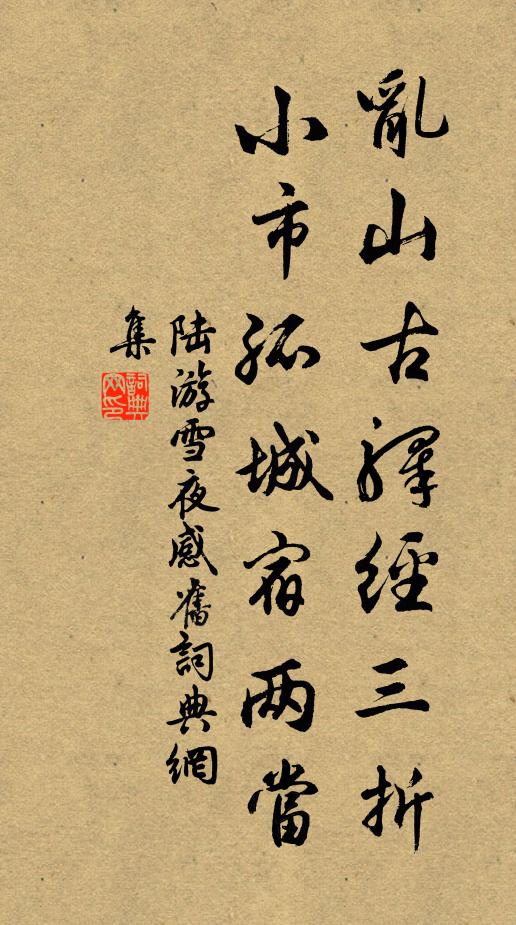 亂山古驛經三折
小市孤城宿两當
陆游雪夜感舊詞典網
集
詞典網印